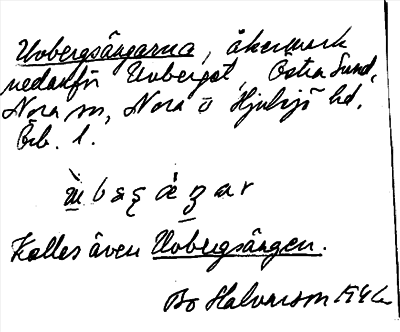 Uvbergsängarna, åkermark
nedanför Uvberget, Östra Sund,
Nora sn, Nora o Hjulsjö hd,
Örb. l.
Kallas även Uvbergsängen.
Bo Halvarson